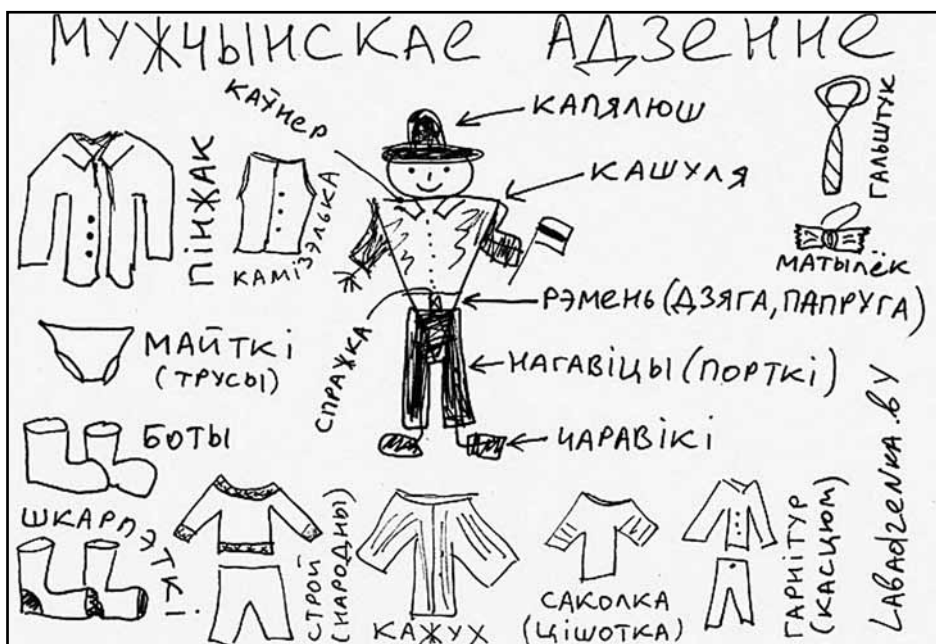 МУЖЧЫНСКАЕ АДЗЕННЕ
КАЎНЕР
КАПЯЛЮШ
ГАЛЬШТУК
ПІНЖАК
КАМІЗЭЛЬКА
КАШУЛЯ
МАТЫЛЁК
РЭМЕНЬ (ДЗЯГА, ПАПРУГА)
МАЙТКІ
(ТРУСЫ)
СПРАЖКА
НАГАВІЦЫ (ПОРТКІ)
БОТЫ
ЧАРАВІКІ
ШКАРПЭТКІ
СТРОЙ
(НАРОДНЫ)
КАЖУХ
САКОЛКА
(ЦІШОТКА)
ГАРНІТУР
(КАСЦЮМ)
LABADZENKA.BY